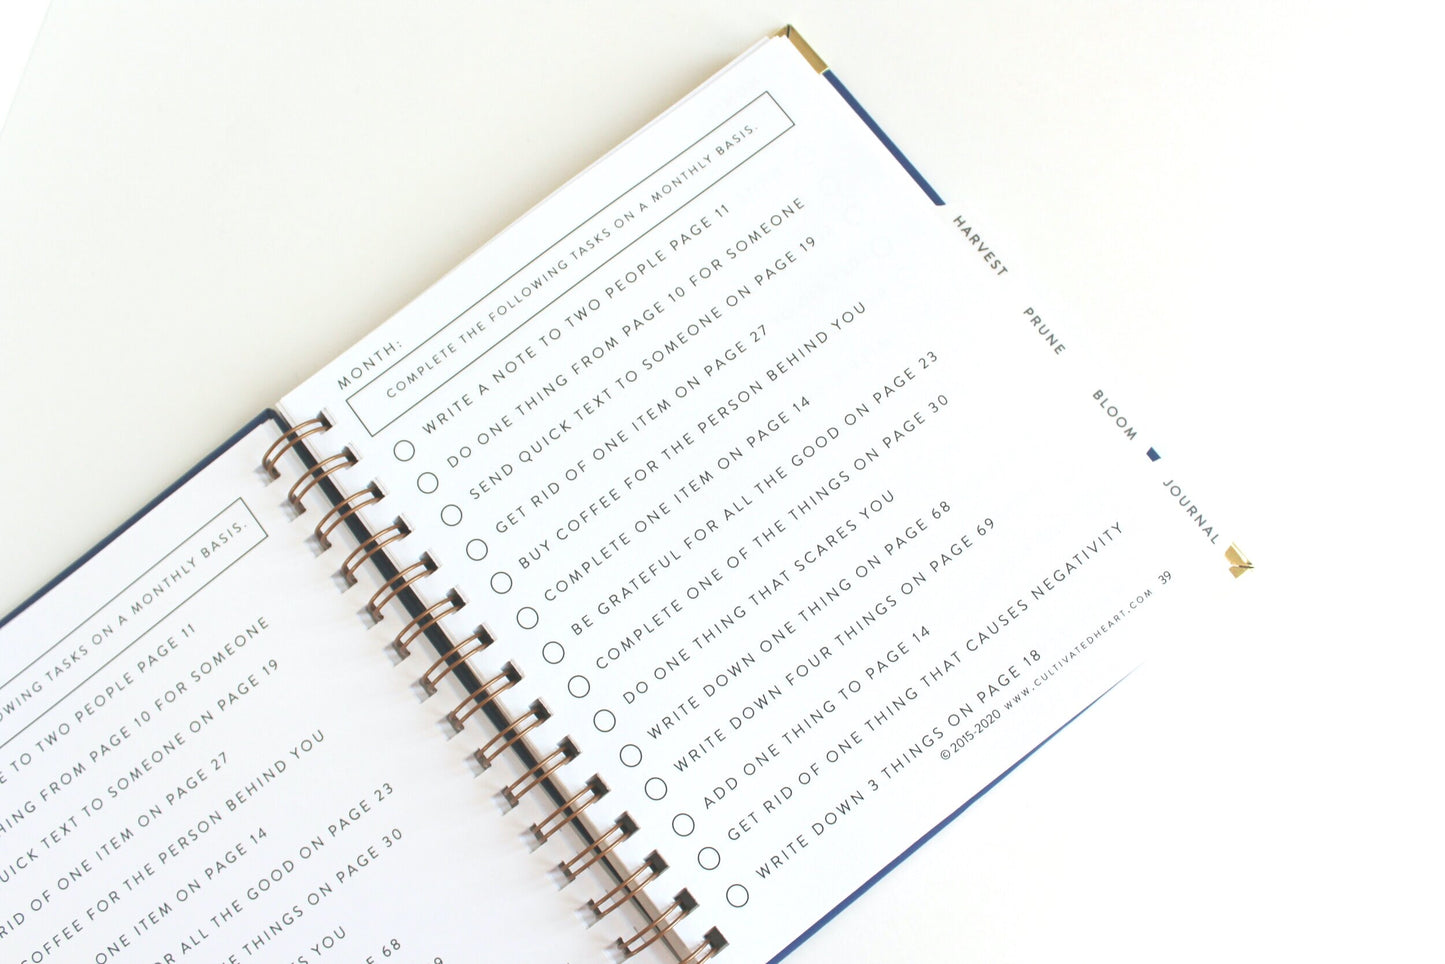 MONTH:
COMPLETE THE FOLLOWING TASKS ON A MONTHLY BASIS.
WRITE A NOTE TO TWO PEOPLE PAGE 11
DO ONE THING FROM PAGE 10 FOR SOMEONE
SEND QUICK TEXT TO SOMEONE ON PAGE 19
GET RID OF ONE ITEM ON PAGE 27
BUY COFFEE FOR THE PERSON BEHIND YOU
COMPLETE ONE ITEM ON PAGE 14
BE GRATEFUL FOR ALL THE GOOD ON PAGE 23
COMPLETE ONE OF THE THINGS ON PAGE 30
DO ONE THING THAT SCARES YOU
WRITE DOWN ONE THING ON PAGE 68
WRITE DOWN FOUR THINGS ON PAGE 69
ADD ONE THING TO PAGE 14
GET RID OF ONE THING THAT CAUSES NEGATIVITY
WRITE DOWN 3 THINGS ON PAGE 18
©2015-2020 WWW.CULTIVATEDHEART.COM 39
HARVEST
PRUNE
BLOOM
JOURNAL
TASKS ON A MONTHLY BASIS.
TO TWO PEOPLE PAGE 11
FROM PAGE 10 FOR SOMEONE
TEXT TO SOMEONE ON PAGE 19
RID OF ONE ITEM ON PAGE 27
COFFEE FOR THE PERSON BEHIND YOU
ONE ITEM ON PAGE 14
ALL THE GOOD ON PAGE 23
THINGS ON PAGE 30
YOU
68